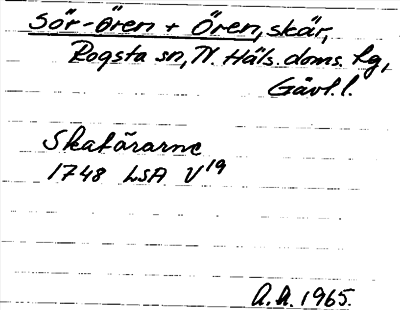 Sör-ören + Ören, skär,
Rogsta sn, N. Häls. doms. lg,
Gävl. l.
Skatörarne
1748 LSA V19
A.A. 1965.